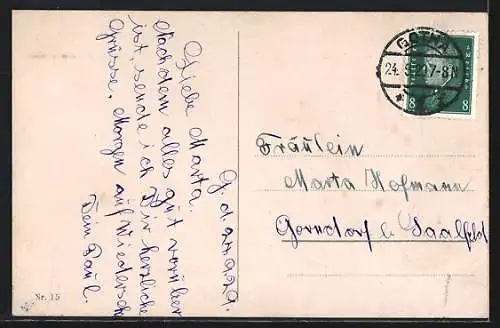 G. d. 24.9.29.
Liebe Marta.
Nachdem alles gut vorüber
ist, sende ich Dir herzliche
Grüsse. Morgen auf Wiedersehn
Dein Paul.
GOTHA
24. 7-8
8 8
Fräulein
Marta Hofmann
Gorndorf b. Saalfeld
Nr. 15